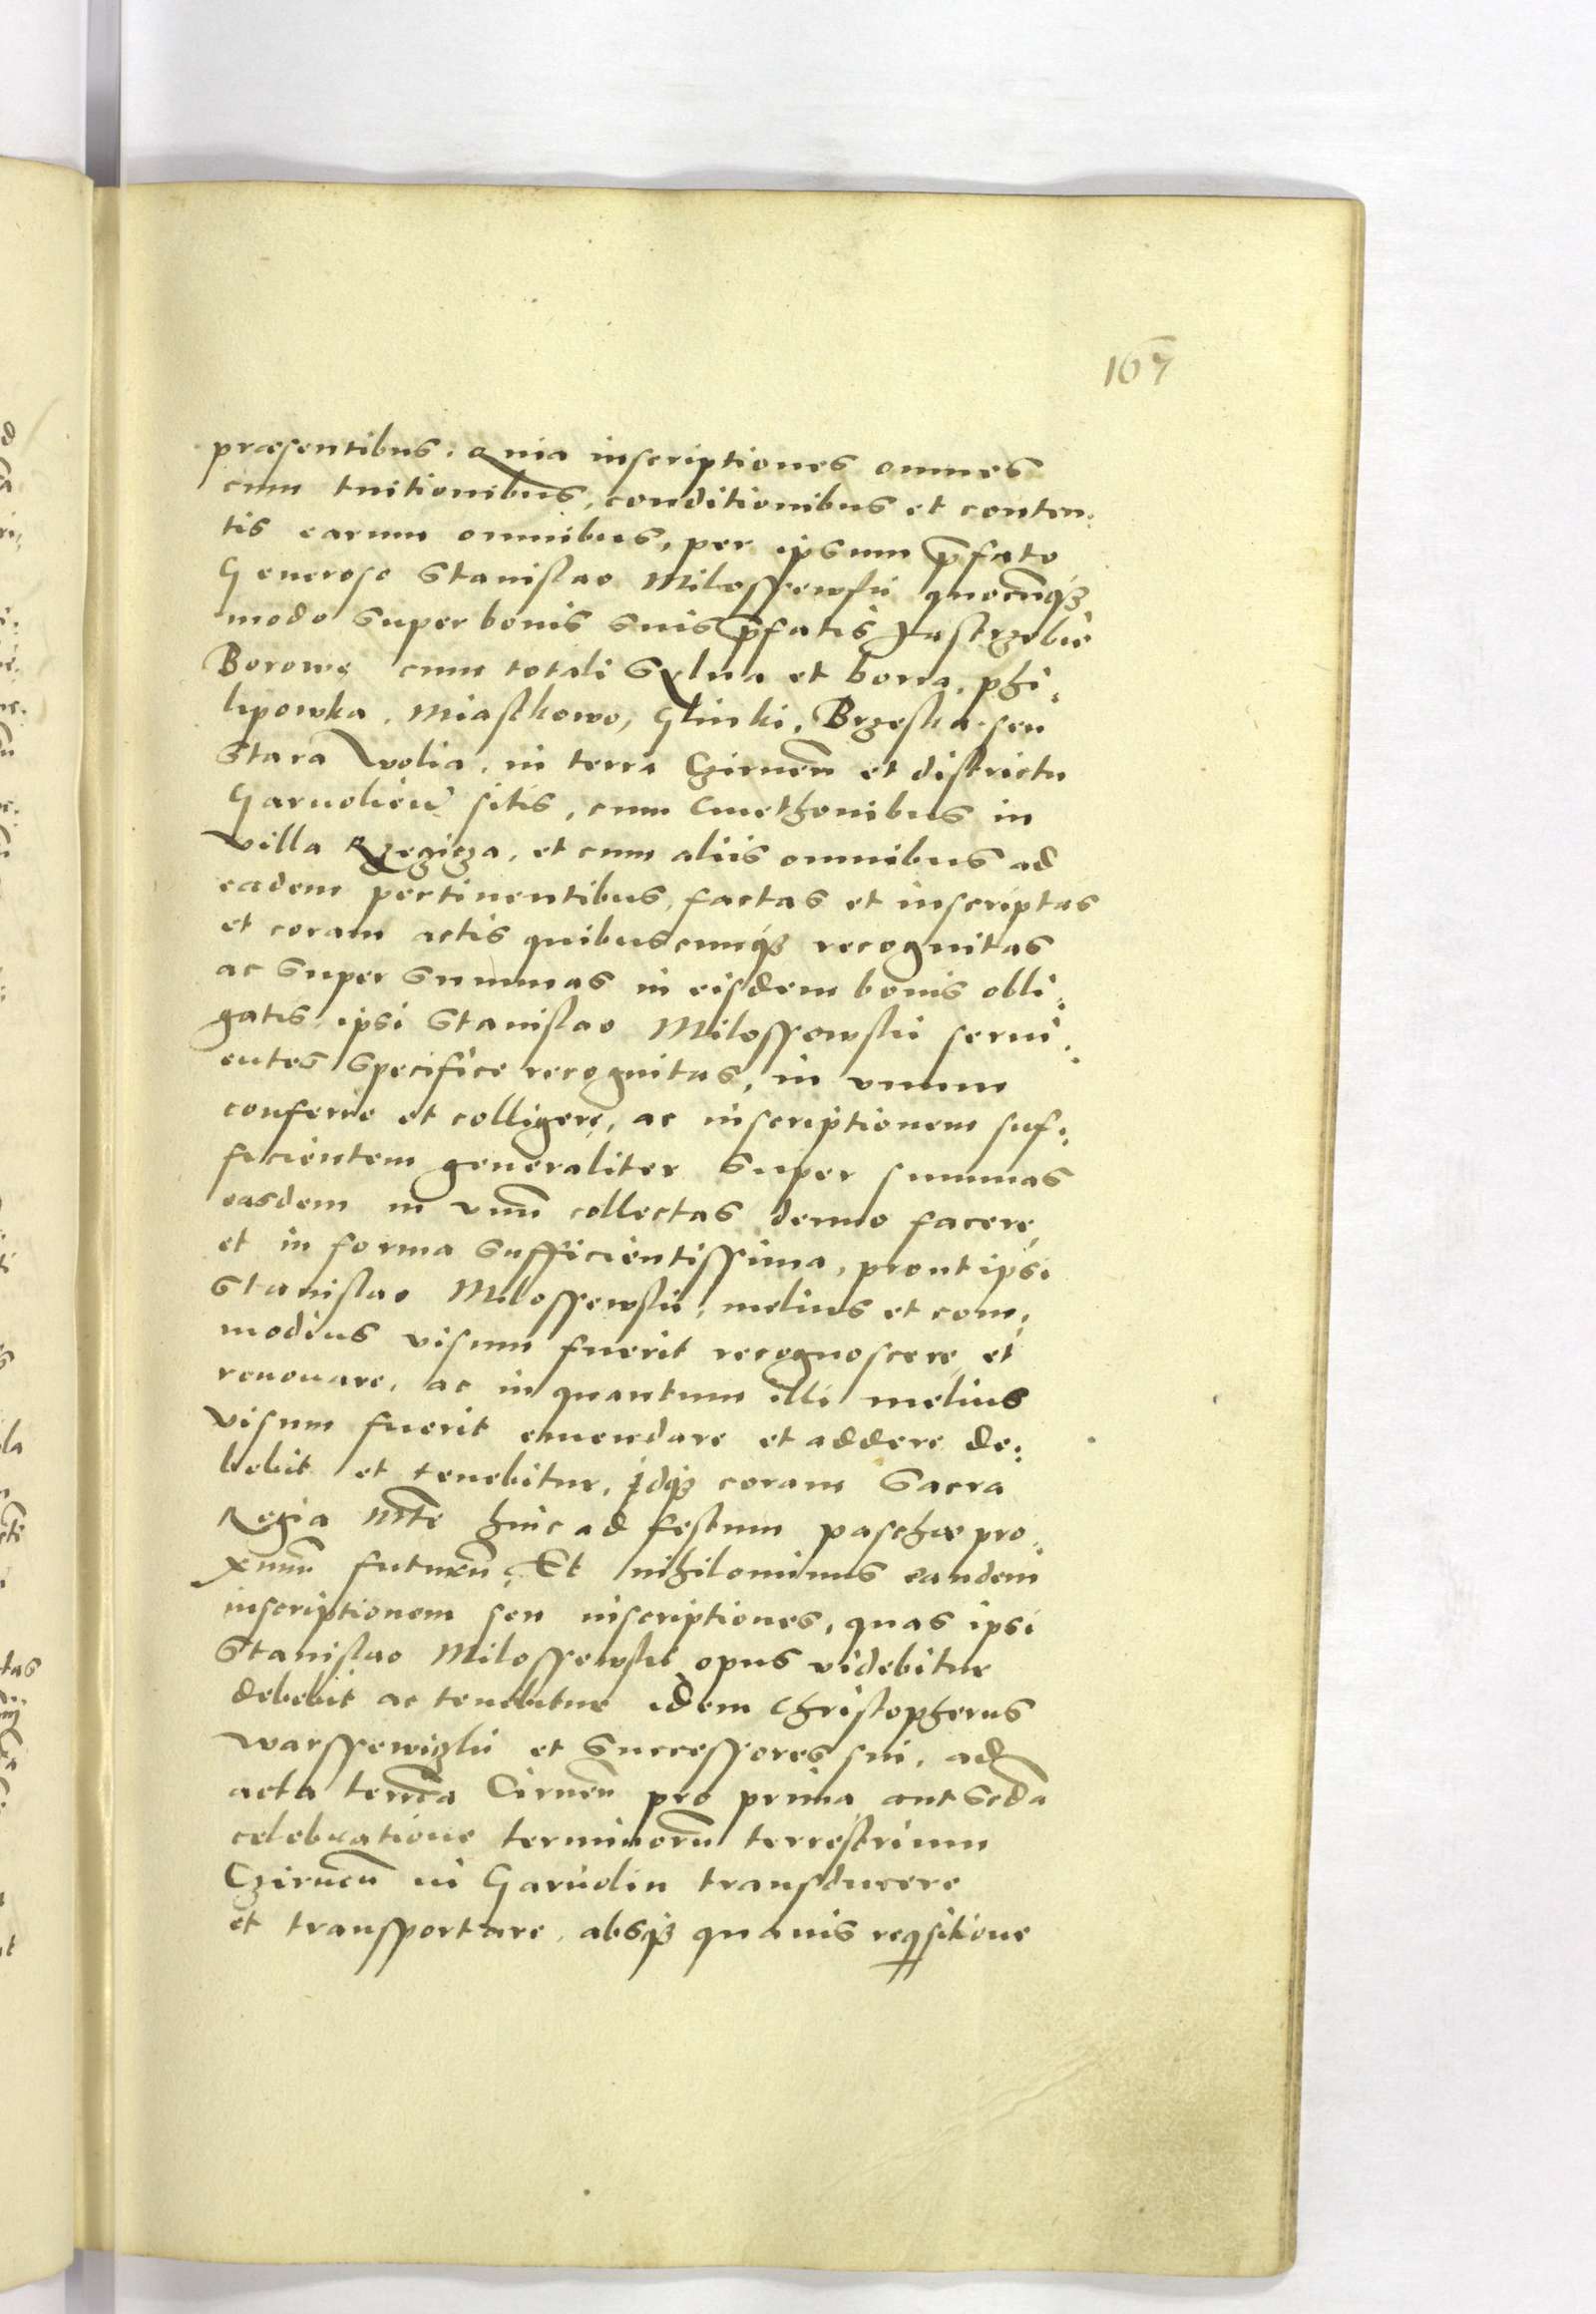 167
præsentibus. Quia inscriptiones omnes
cum tuitionibus, conditionibus et conten:
tis earum omnibus, per ipsum p̄fato
Generoso Stanislao Milossewski quocūq₃
modo super bonis suis p̄fatis Jastrzebie
Borowe cum totali Sylua et borra, Phi:
lipowka, Miastkowo, Glinki, Brzeska seu
Stara Wolia, in terra Czirneñ et districtu
Garuolieñ sitis, cum Cmethonibus in
villa Rzegicza, et cum aliis omnibus ad
eadem pertinentibus, factas et inscriptas
et coram actis quibuscumq₃ recognitas
ac super summas in eisdem bonis obli:
gatis, ipsi Stanislao Milossowski serui:
entes specifice recognitas, in vnum
conferre et colligere, ac inscriptionem suf:
ficientem generaliter super summas
easdem in vnū collectas denuo facere,
et in forma sufficientissima, prout ipsi
Stanislao Milossewski, melius et com:
modius visum fuerit recognoscere et
renouare, ac in quantum illi melius
visum fuerit emendare et addere de:
bebit et tenebitur, idq₃ coram Sacra
Regia Mte hinc ad festum paschæ pro:
ximū futurū. Et nihilominus eandem
inscriptionem seu inscriptiones, quas ipsi
Stanislao Milossewski opus videbitur
debebit ac tenebitur idem Christopherus
Warssewiczki et successores sui, ad
acta terrēa Cirneñ pro prima aut Scda
celebratione terminorū terrestrium
Czirneñ in Garuolin transducere
et transportare, absq₃ quauis reqsitione